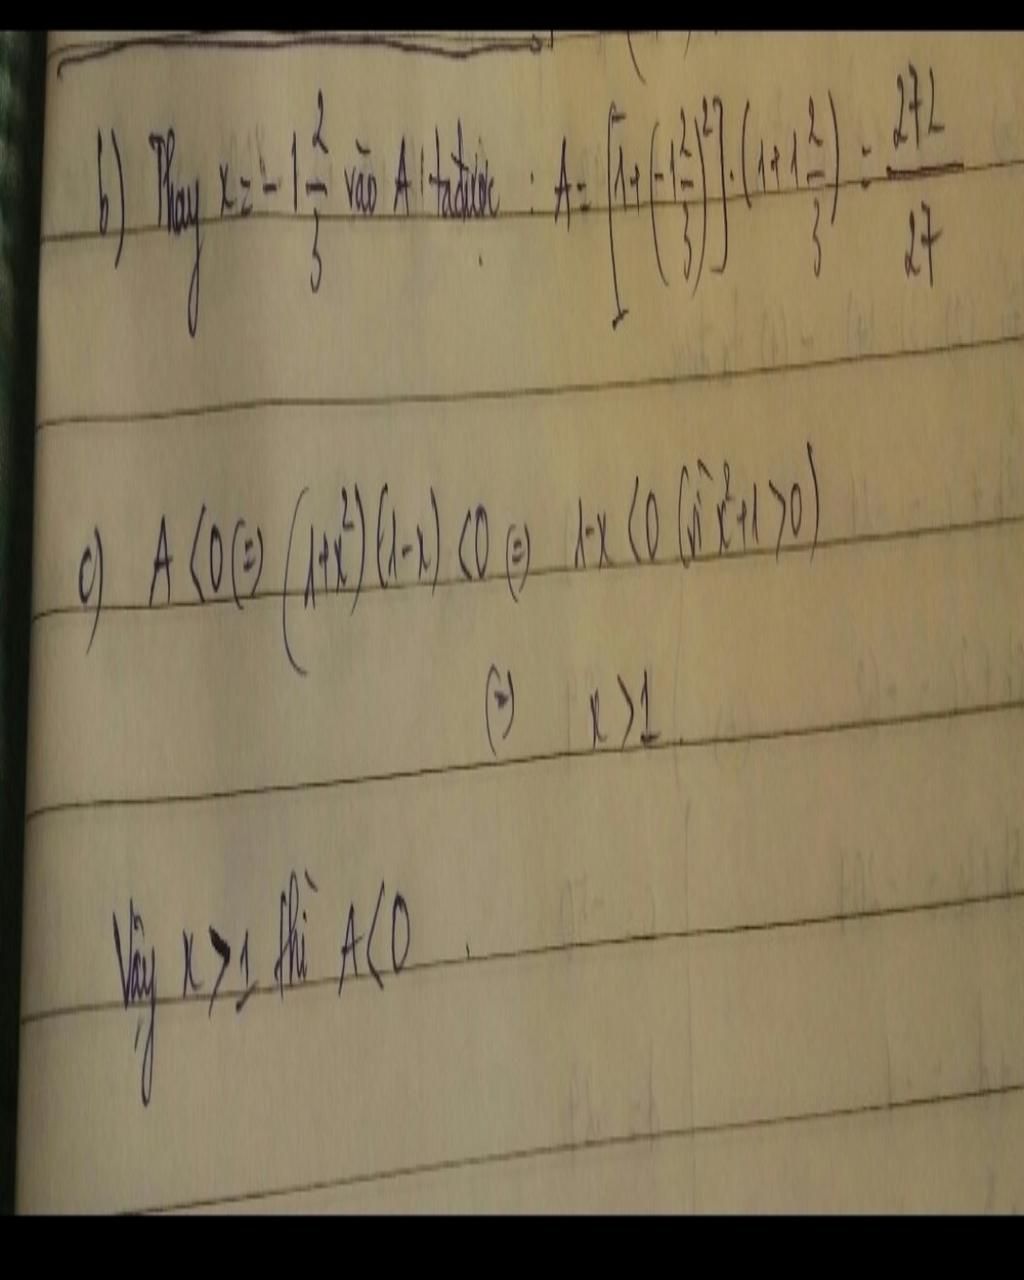 b) Thay x = -1 2/3 vào A ta được : A = [1 + (-1 2/3)²] . (1 + 1 2/3) = 272/27
c) A < 0 (=) (1+x²)(1-x) < 0 (=) 1-x < 0 (vì x²+1 > 0)
(=) x > 1
Vậy x > 1 thì A < 0